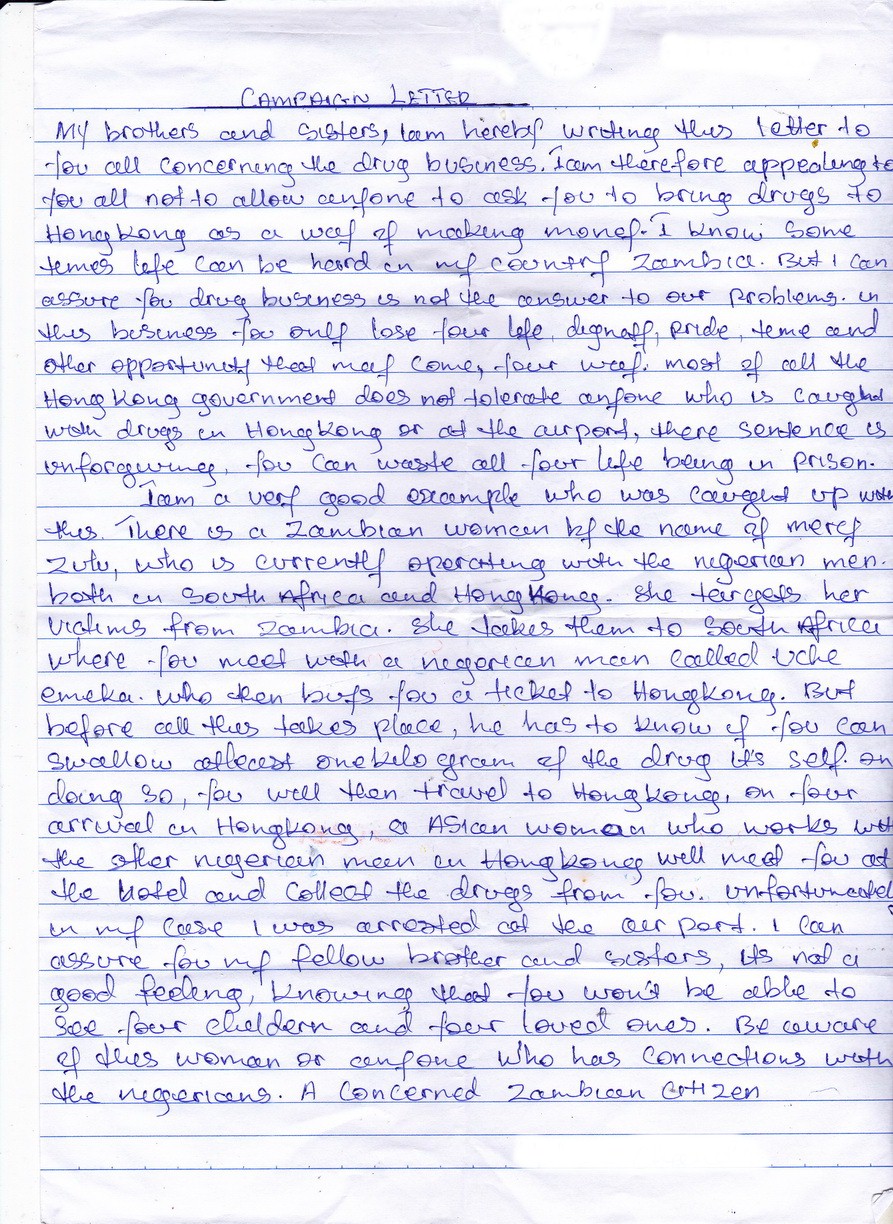 CAMPAIGN LETTER
My brothers and sisters, I am hereby writing this letter to
you all concerning the drug business. I am therefore appealing to
you all not to allow anyone to ask you to bring drugs to
Hong Kong as a way of making money. I know some
times life can be hard in my country Zambia. But I can
assure you drug business is not the answer to our problems. in
this business you only lose your life, dignity, pride, time and
other opportunity that may come, your way. most of all the
Hong Kong government does not tolerate anyone who is caught
with drugs in Hong Kong or at the airport, there sentence is
unforgiving, you can waste all your life being in prison.
I am a very good example who was caught up with
this. There is a Zambian woman by the name of mercy
Zulu, who is currently operating with the negerian men.
both in South Africa and Hong Kong. She targets her
victims from Zambia. She takes them to South Africa
where you meet with a negerian man called Uche
emeka. who then buys you a ticket to Hong Kong. But
before all this takes place, he has to know if you can
swallow atleast one kilo gram of the drug it's self. on
doing so, you will then travel to Hong Kong, on your
arrival in Hong Kong, a ASian woman who works with
the other negerian man in Hong Kong will meet you at
the Hotel and Collect the drugs from you. unfortunatel
in my case I was arrested at the air port. I can
assure you my fellow brother and sisters, its not a
good feeling, knowing that you won't be able to
see your cheldern and your loved ones. Be aware
of this woman or anyone who has connections with
the negerians. A Concerned Zambian Citizen